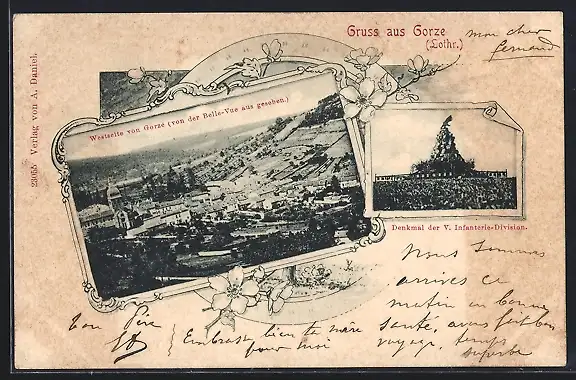 Gruss aus Gorze
(Lothr.)
mon cher
fernand
23055 Verlag von A. Daniel.
Westseite von Gorze (von der Belle-Vue aus gesehen.)
Denkmal der V. Infanterie-Division.
Nous sommes
arrivés ce
matin en bonne
santé, avons fait bon
voyage, temps
superbe
Ton Père
Embrasse bien ta mère
pour moi